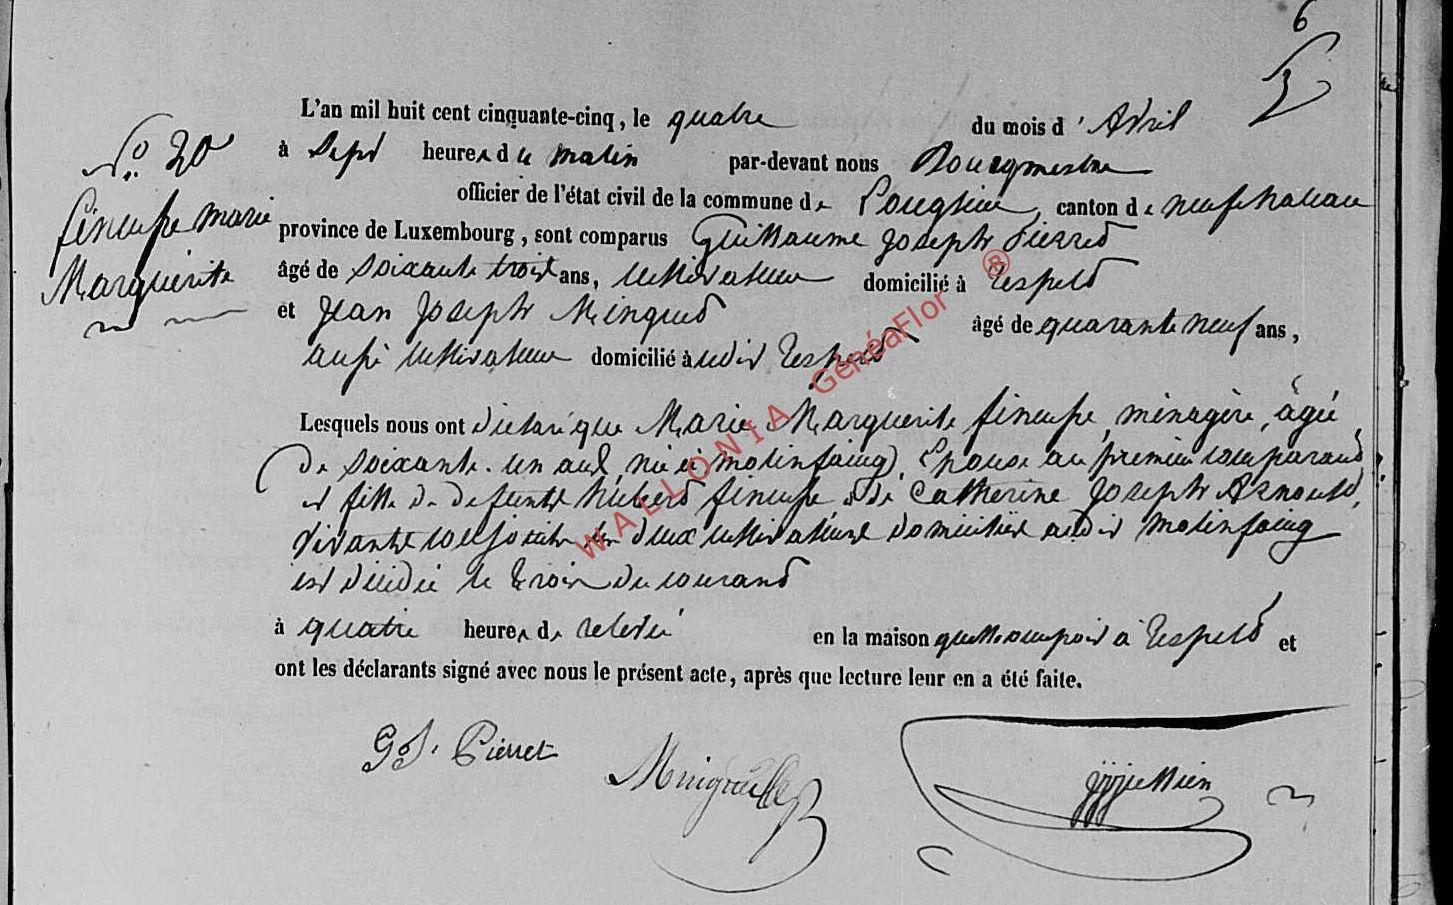 6
L'an mil huit cent cinquante-cinq, le quatre du mois d' Avril
No. 20
à Sept heures du matin par-devant nous Bourgmestre
officier de l'état civil de la commune de Longlier, canton de neufchateau
Marie
province de Luxembourg, sont comparus Guillaume Joseph Pierret
Marguerite
âgé de soixante trois ans, cultivateur domicilié à Respelt
et Jean Joseph Minguet âgé de quarante neuf ans,
aussi cultivateur domicilié à udit Respelt
Lesquels nous ont déclaré que Marie Marguerite fineuse, ménagère, âgée
De soixante un ans, née à molinfaing, Epouse au premier comparant
et fille de defunts hubert fineuse, & de Catherine Joseph Arnould,
vivants tous deux cultivateurs domiciliés audit molinfaing
est décédée le trois du courant
à quatre heures de relevée en la maison qu'elle occupoit à Respelt et
ont les déclarants signé avec nous le présent acte, après que lecture leur en a été faite.
G J. Pierret
WALLONIA GenéaFlor ®